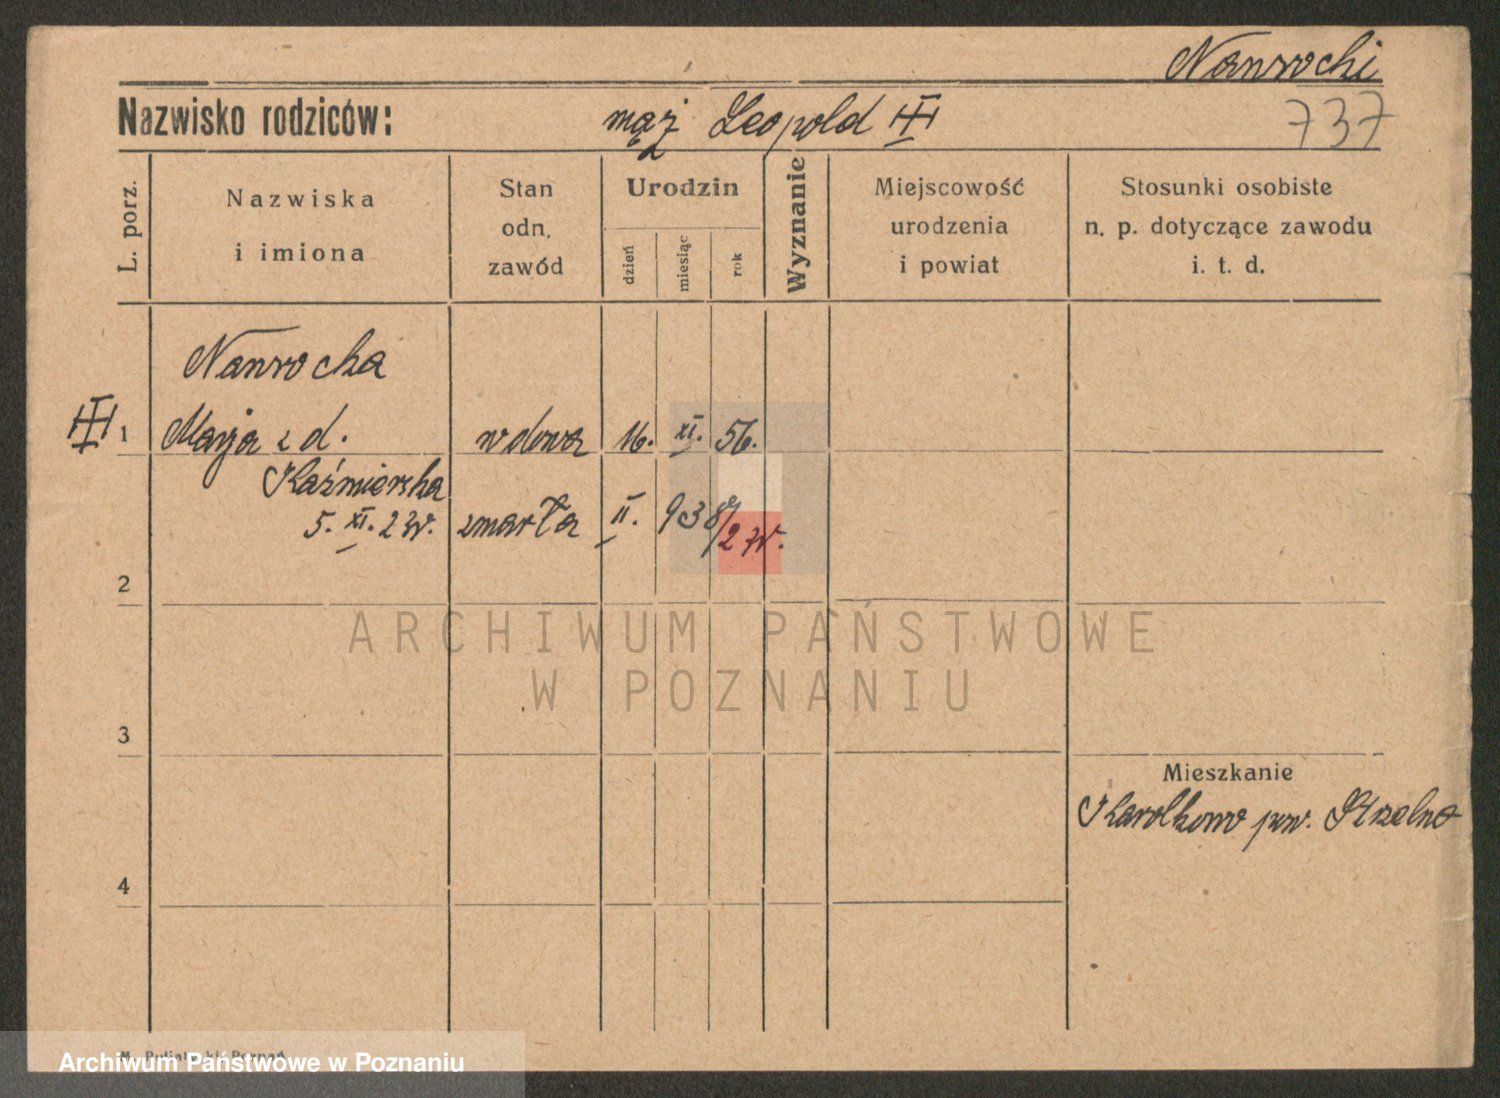 Nawrocki
Nazwisko rodziców: mąż Leopold
737
L. porz.
Nazwiska
i imiona
Stan
odn.
zawód
Urodzin
dzień
miesiąc
rok
Wyznanie
Miejscowość
urodzenia
i powiat
Stosunki osobiste
n. p. dotyczące zawodu
i. t. d.
Nawrocka
1 Marja z d. wdowa 16. XI. 56.
Kaźmierska
5. XI. 23r. zmarła II. 938/23r.
2
ARCHIWUM PAŃSTWOWE
W POZNANIU
3
Mieszkanie
Karolkowo pow. Strzelno
4
Archiwum Państwowe w Poznaniu